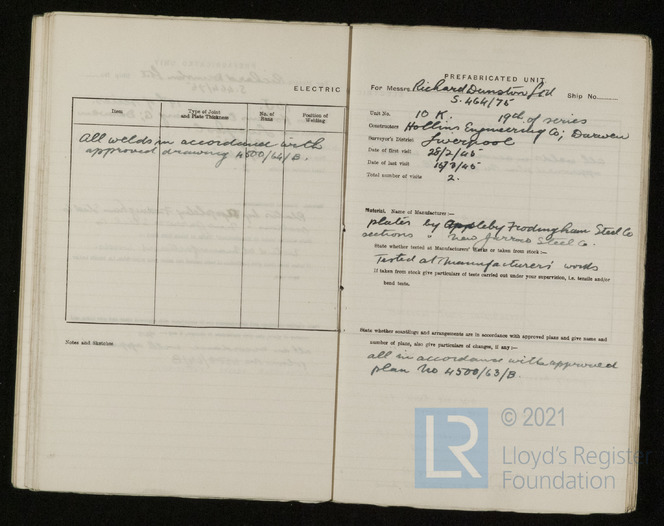 ELECTRIC
Item
Type of Joint and Plate Thickness
No. of Runs
Position of Welding
All welds in accordance with
approved drawing 4500/64/B.
Notes and Sketches
PREFABRICATED UNIT
For Messrs. Richard Dunston Ltd Ship No.
S. 464/75
Unit No. 10 K. 19th of series
Constructors Hollins Engineering Co; Darwen
Surveyor's District Liverpool
Date of first visit 28/2/45
Date of last visit 16/3/45
Total number of visits 2.
Material. Name of Manufacturer:—
plates by Appleby Frodingham Steel Co
sections " New Jarrow Steel Co.
State whether tested at Manufacturers' Works or taken from stock:—
Tested at Manufacturers' works
If taken from stock give particulars of tests carried out under your supervision, i.e. tensile and/or
bend tests.
State whether scantlings and arrangements are in accordance with approved plans and give name and
number of plans, also give particulars of changes, if any:—
all in accordance with approved
plan No 4500/63/B.
© 2021
LR
Lloyd's Register
Foundation